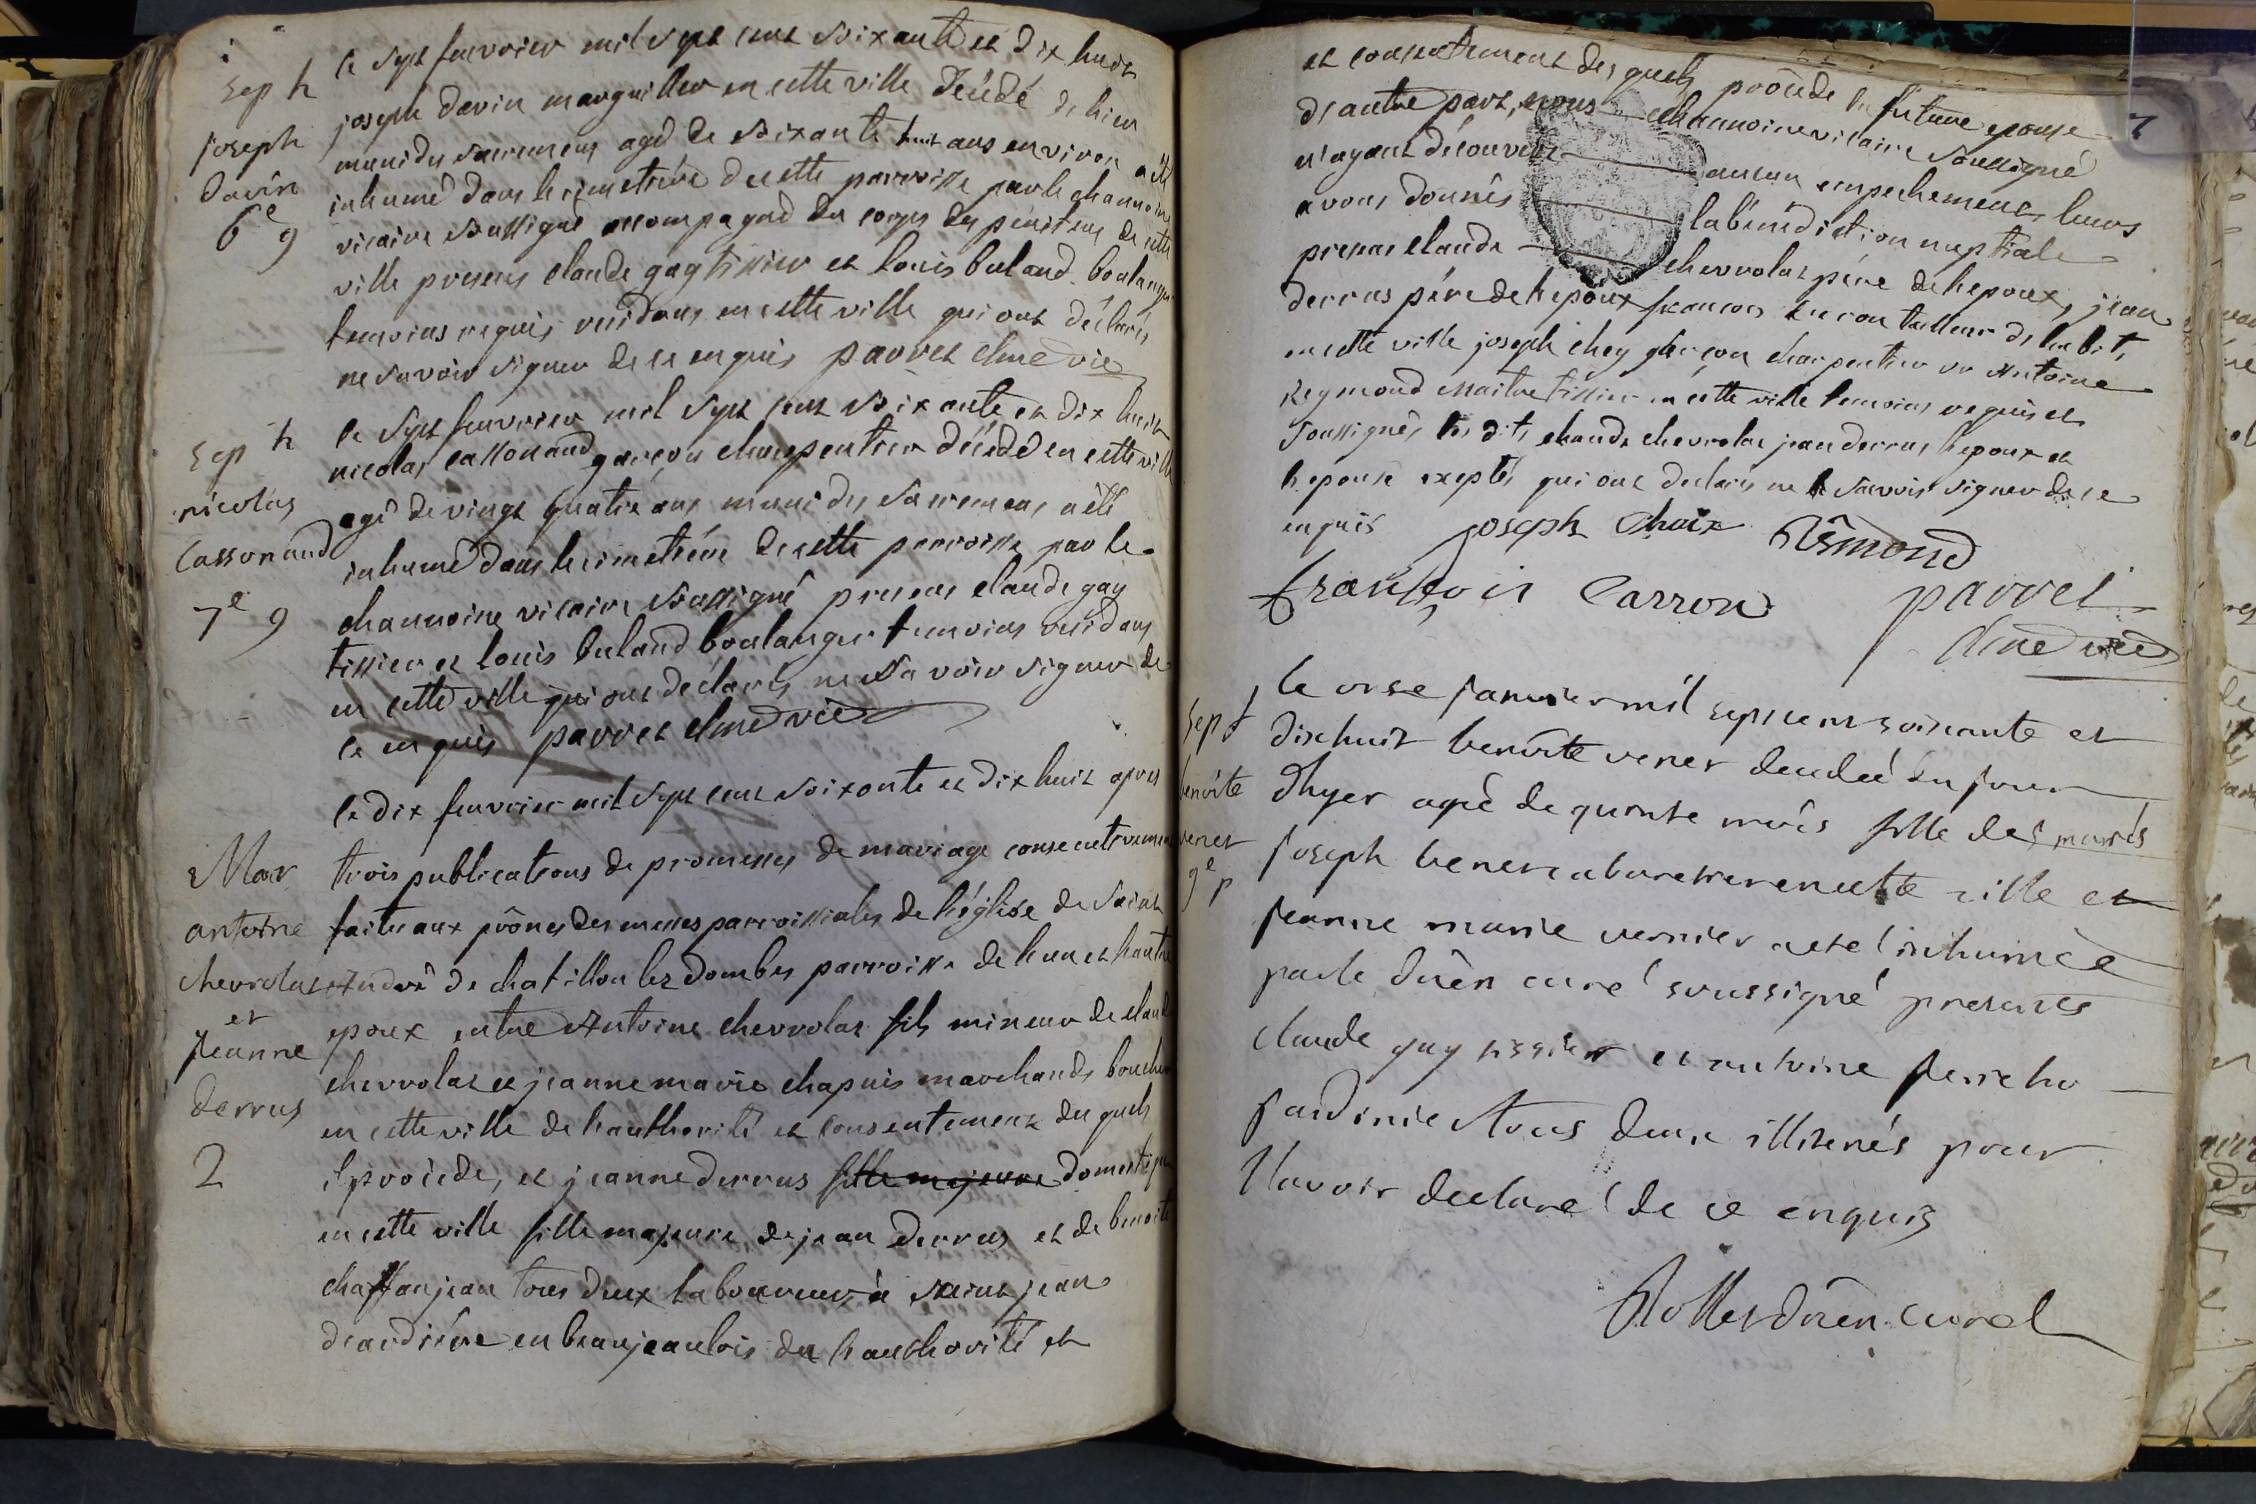 sep h
joseph
davin
6e 9
le sept fevvrier mil sept cent soixante et dix huit
joseph davin marguillier en cette ville décédé de hier
muni des sacremens agé de soixante huit ans environ a été
inhumé dans le cimetiére de cette parroisse par le chanoine
vicaire soussigné accompagné du corps des pénitens de cette
ville presens claude gay tissier et louis buland boulanger
temoins requis residans en cette ville qui ont déclarés
ne savoir signer de ce enquis parret chne vic
sep h
nicolas
Cassonaud
7e 9
le sept fevvrier mil sept cent soixante et dix huit
nicolas cassonaud garçon charpentier décédé en cette ville
agé de vingt quatre ans muni des sacremens a été
inhumé dans le cimetiére de cette parroisse par le
chanoine vicaire soussigné presens claude gay
tissier et louis buland boulanger temoins residans
en cette ville qui ont déclarés ne savoir signer de
ce enquis parret chne vic
Mar
antoine
chevrolat
et
Jeanne
derrus
2
le dix fevvrier mil sept cent soixante et dix huit apres
trois publications de promesses de mariage consecutivement
faite aux prônes des messes parroissiales de l'église de Saint
André de chatillon les dombes parroisse de l'un et l'autre
epoux entre Antoine chevrolat fils mineur de claude
chevrolat et jeanne marie chapuis marchands boucher
en cette ville de l'authorité et consentement des quels
il procéde, et jeanne derrus fille majeure domestique
en cette ville fille majeure de jean derrus et de benoite
chaffanjean tous deux laboureurs à saint jean
d'ardiére en beaujeaulois de l'authorité et
7
et consentement des quels procéde la future epouse
d'autre part, nous chanoine vicaire soussigné
n'ayant découvert aucun empechement leurs
avons donnés la bénédiction nuptiale
presens claude chevrolat pére de l'epoux, jean
derrus pére de l'epouse francois caron tailleur d'habits
en cette ville joseph choy garçon charpentier et Antoine
Reymond maitre tissier en cette ville temoins requis et
soussignés les dits claude chevrolat jean derrus l'epoux et
l'epouse exeptés qui ont declarés ne savoir signer de ce
enquis joseph Choix Rêmond
françois Carron parret
chne vic
sep
benoite
venet
9e p
le onze janvier mil sept cent soixante et
dix huit benoite venet decedeé du jour
d'hyer ageé de quinze mois fille des mariés
joseph venet cabaretier en cette ville et
jeanne marie vernier a eté inhumée
par le doïen curé soussigné presents
claude gay tissier et antoine
jardinier tous deux illiterés pour
l'avoir declaré de ce enquis
doïen curé